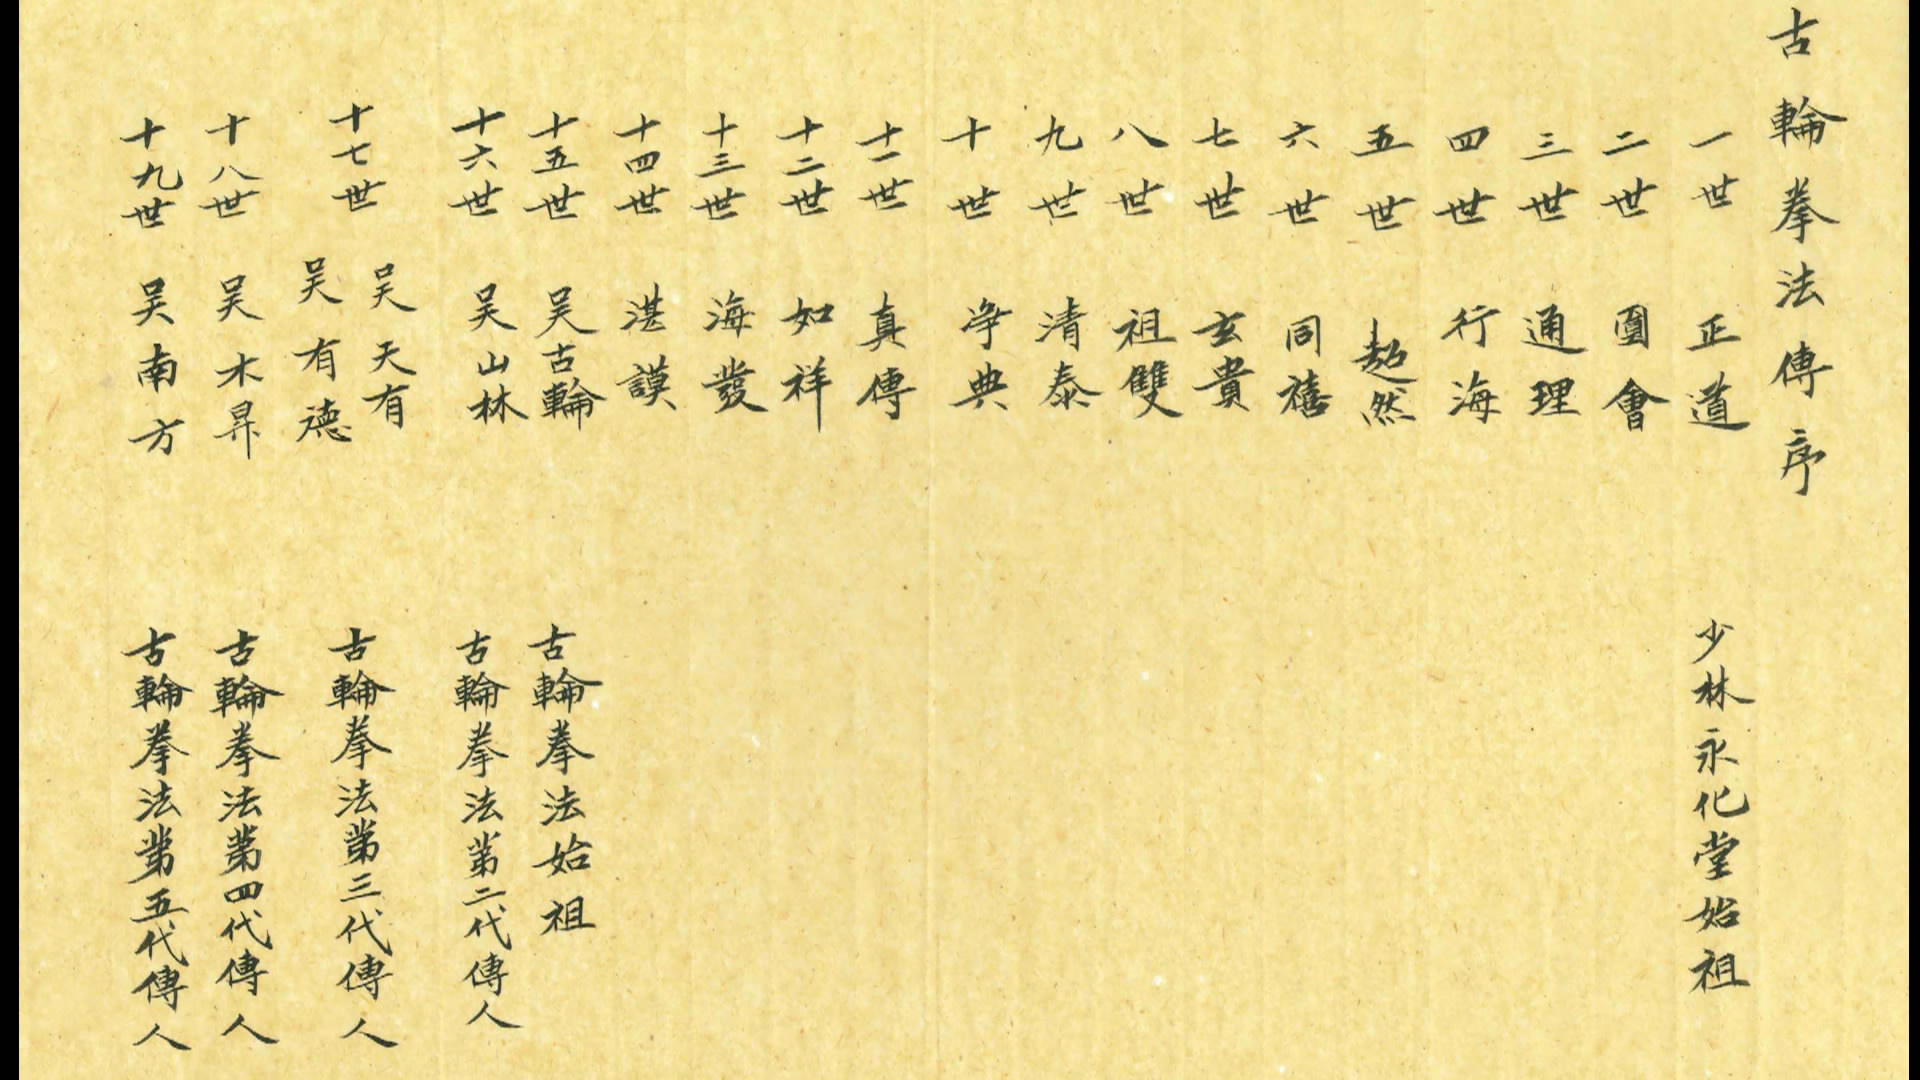 古輪拳法傳序
一世 正道 少林永化堂始祖
二世 圓會
三世 通理
四世 行海
五世 超然
六世 同禧
七世 玄貴
八世 祖雙
九世 清泰
十世 净典
十一世 真傳
十二世 如祥
十三世 海發
十四世 湛謨
十五世 吴古輪 古輪拳法始祖
十六世 吴山林 古輪拳法第二代傳人
十七世 吴天有 吴有德 古輪拳法第三代傳人
十八世 吴木昇 古輪拳法第四代傳人
十九世 吴南方 古輪拳法第五代傳人